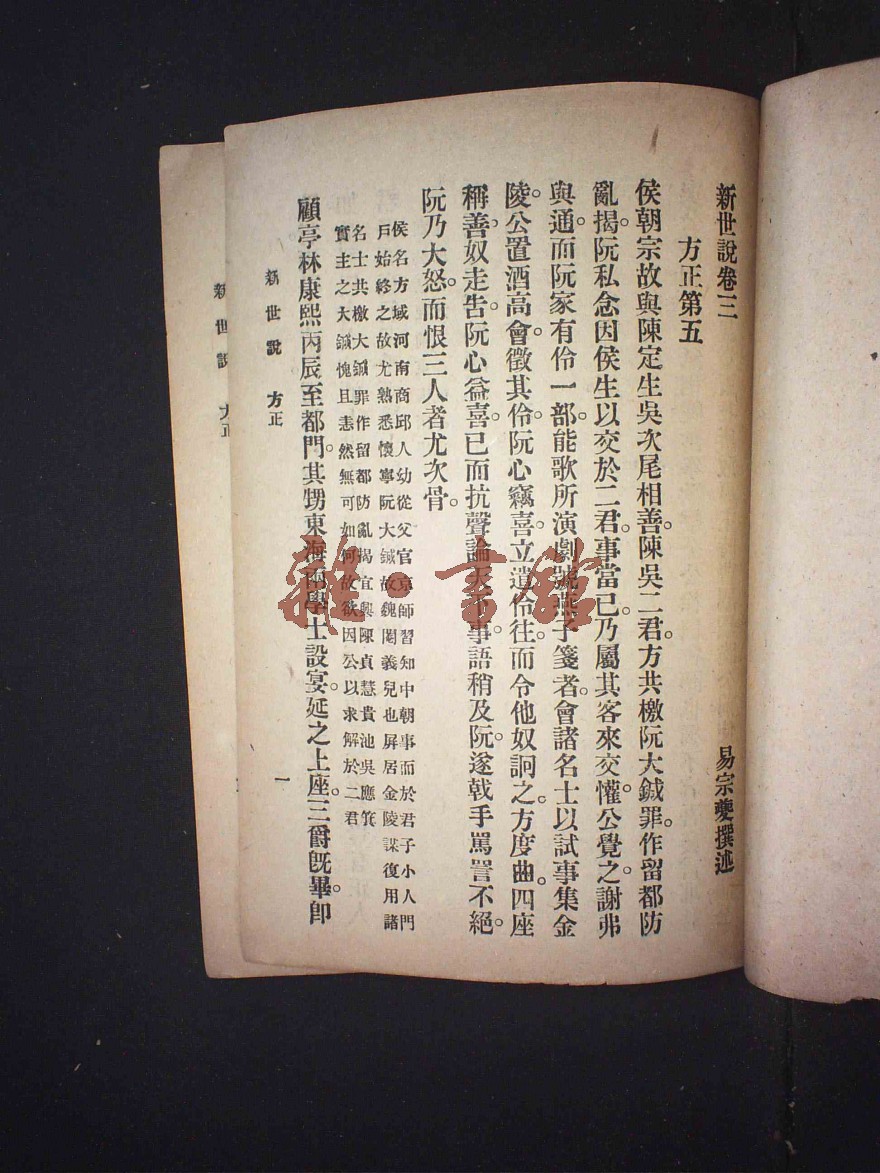 新世說卷三
易宗夔撰述
方正第五
侯朝宗故與陳定生吳次尾相善。陳吳二君。方共檄阮大鋮罪作留都防
亂揭。阮私念因侯生以交於二君。事當已。乃屬其客來交懽。公覺之。謝弗
與通。而阮家有伶一部。能歌所演劇號燕子箋者。會諸名士以試事集金
陵。公置酒高會。徵其伶。阮心竊喜。立遣伶往。而令他奴詗之。方度曲。四座
稱善。奴走告。阮心益喜。已而抗聲論天下事。語稍及阮。遂戟手罵詈不絕。
阮乃大怒。而恨三人者尤次骨。
侯名方域河南商邱人幼從父官京師習知中朝事而於君子小人門
戶始終之故尤熟悉懷寧阮大鋮故魏閹義兒也屏居金陵謀復用諸
名士共檄大鋮罪作留都防亂揭宜興陳貞慧貴池吳應箕二君
實主之大鋮愧且恚然無可如何故欲因公以求解於
顧亭林康熙丙辰至都門。其甥東海兩學士設宴。延之上座。三爵旣畢。卽
新世說 方正 一
新世說 方正
雜·書館